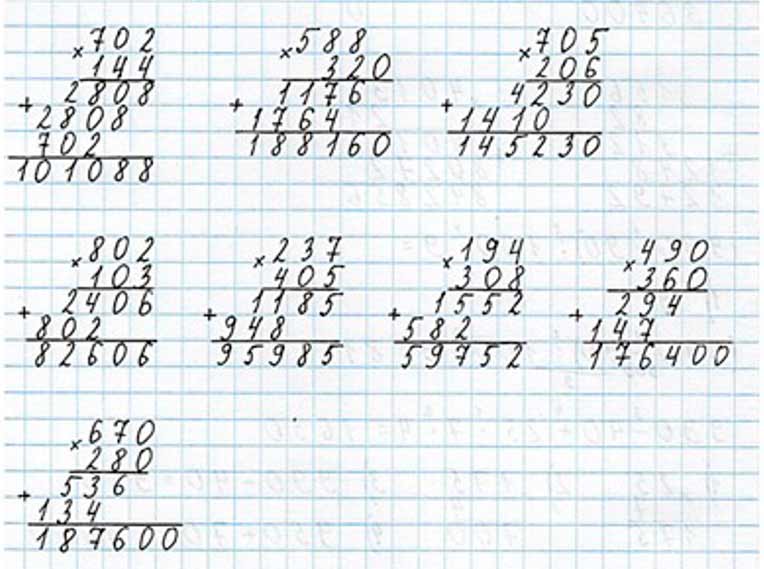 × 702 × 588 × 705
144 320 206
+ 2808 + 1176 + 4230
2808 1764 1410
702 188160 145230
101088
× 802 × 237 × 194 × 490
103 405 308 360
+ 2406 + 1185 + 1552 + 294
802 948 582 147
82606 95985 59752 176400
× 670
280
+ 536
134
187600